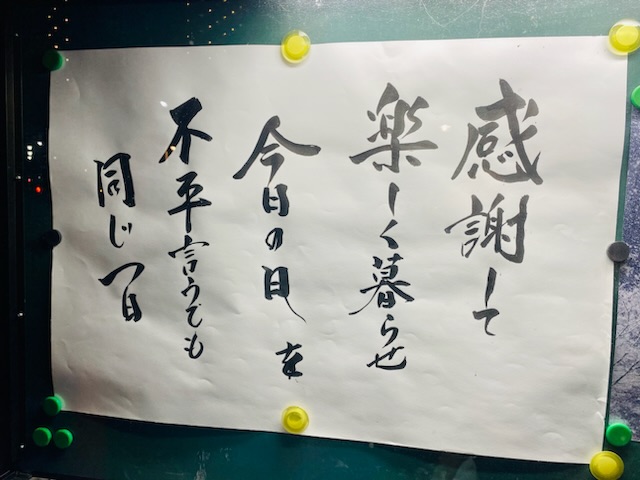 感謝して
楽しく暮らせ
今日の日を
不平言うても
同じ一日